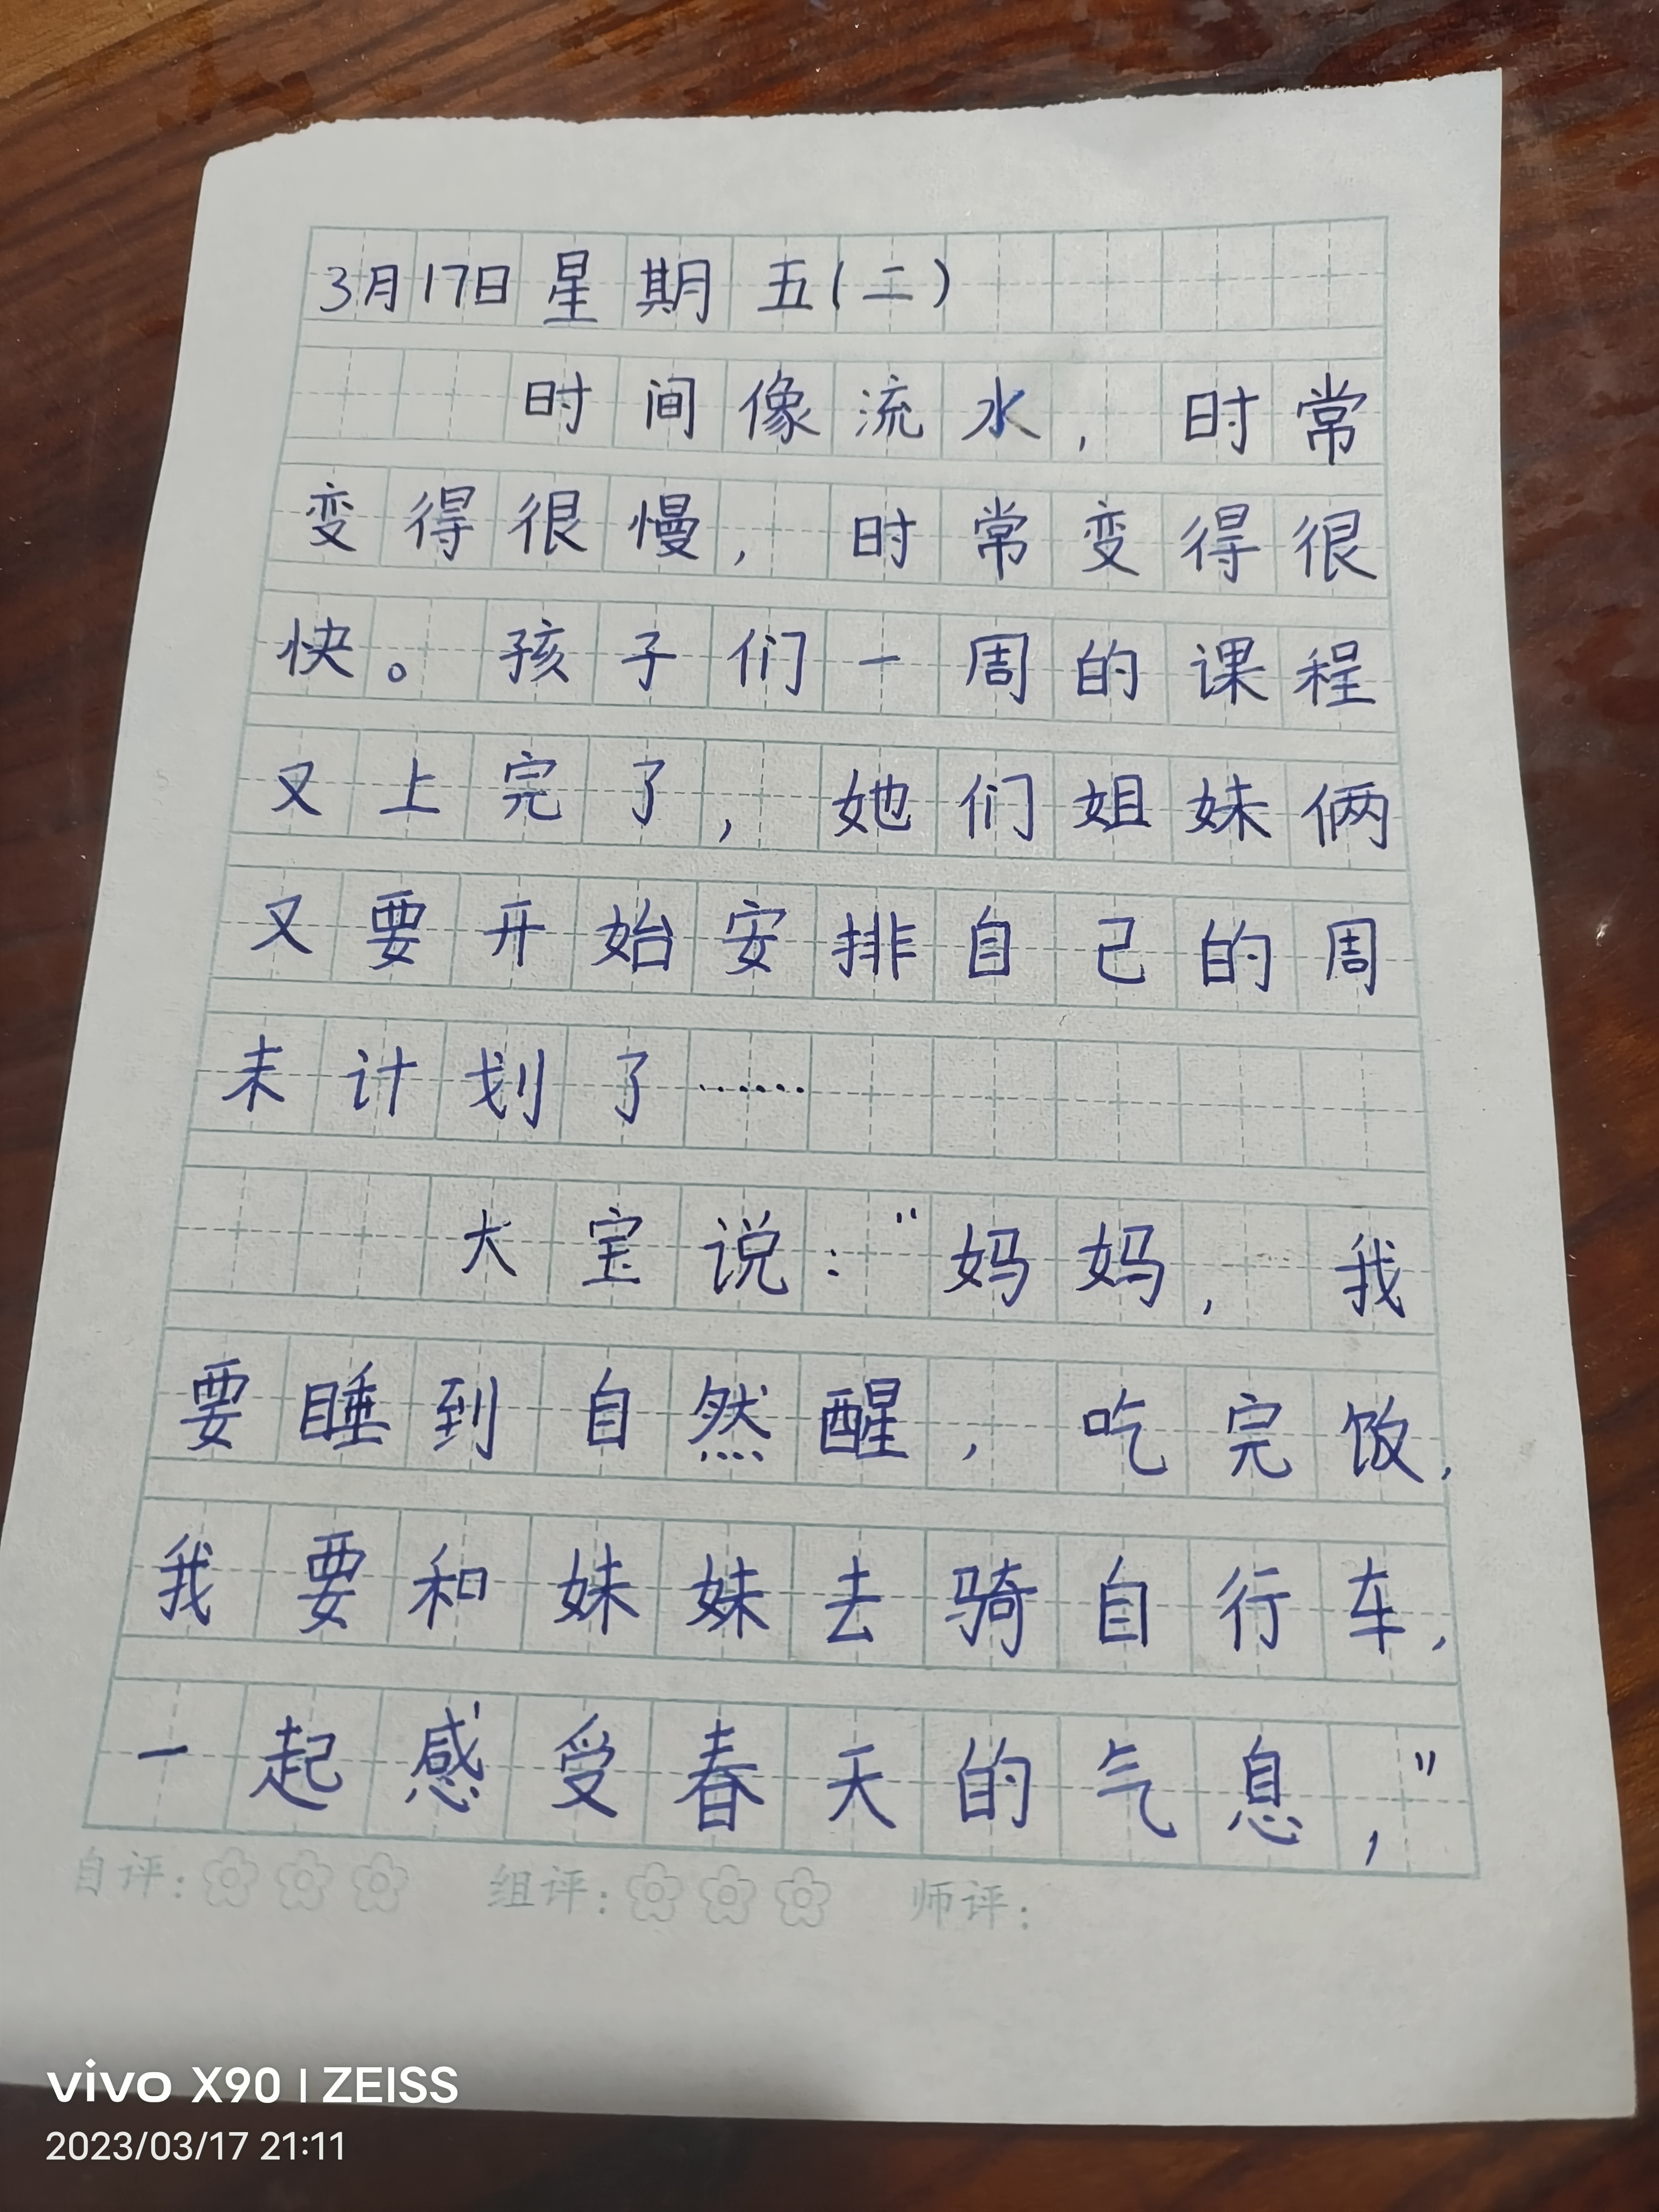 3月17日星期五(二)
时间像流水，时常
变得很慢，时常变得很
快。孩子们一周的课程
又上完了，她们姐妹俩
又要开始安排自己的周
末计划了……
大宝说：“妈妈，我
要睡到自然醒，吃完饭，
我要和妹妹去骑自行车，
一起感受春天的气息，”
自评： 组评： 师评：
vivo X90 | ZEISS
2023/03/17 21:11